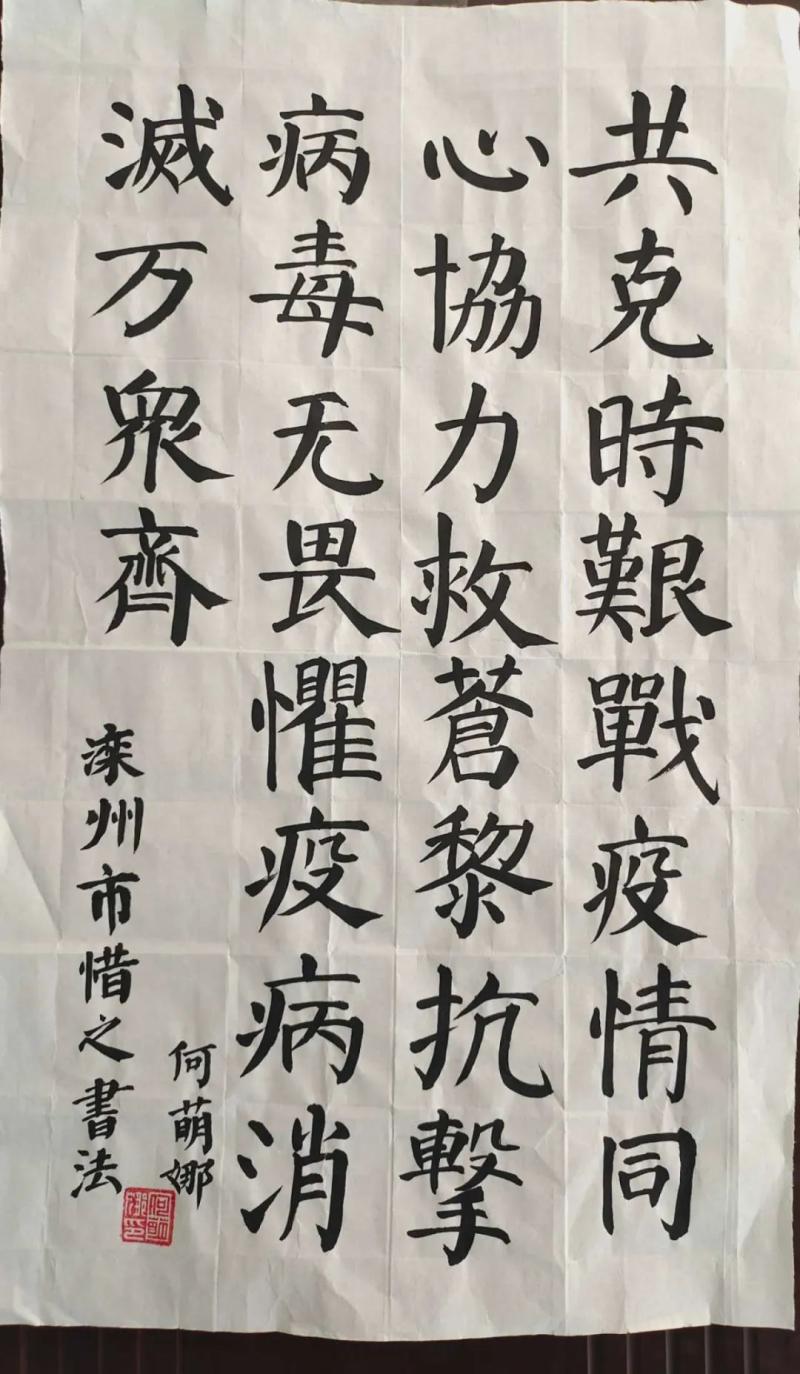 共克時艱戰疫情同
心協力救蒼黎抗擊
病毒无畏懼疫病消
滅万眾齊
何萌娜
滦州市惜之書法